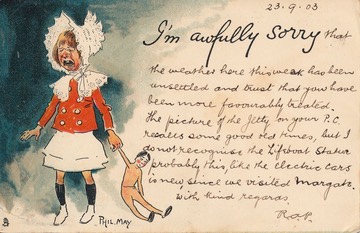 23.9.03
I'm awfully sorry that
the weather here this week has been
unsettled and trust that you have
been more favourably treated.
The picture of the Jetty on your P.C.
recalls some good old times, but I
do not recognise the Lifeboat Statue
probably this, like the electric cars
is new, since we visited Margate
with kind regards.
R.O.P.
PHIL MAY